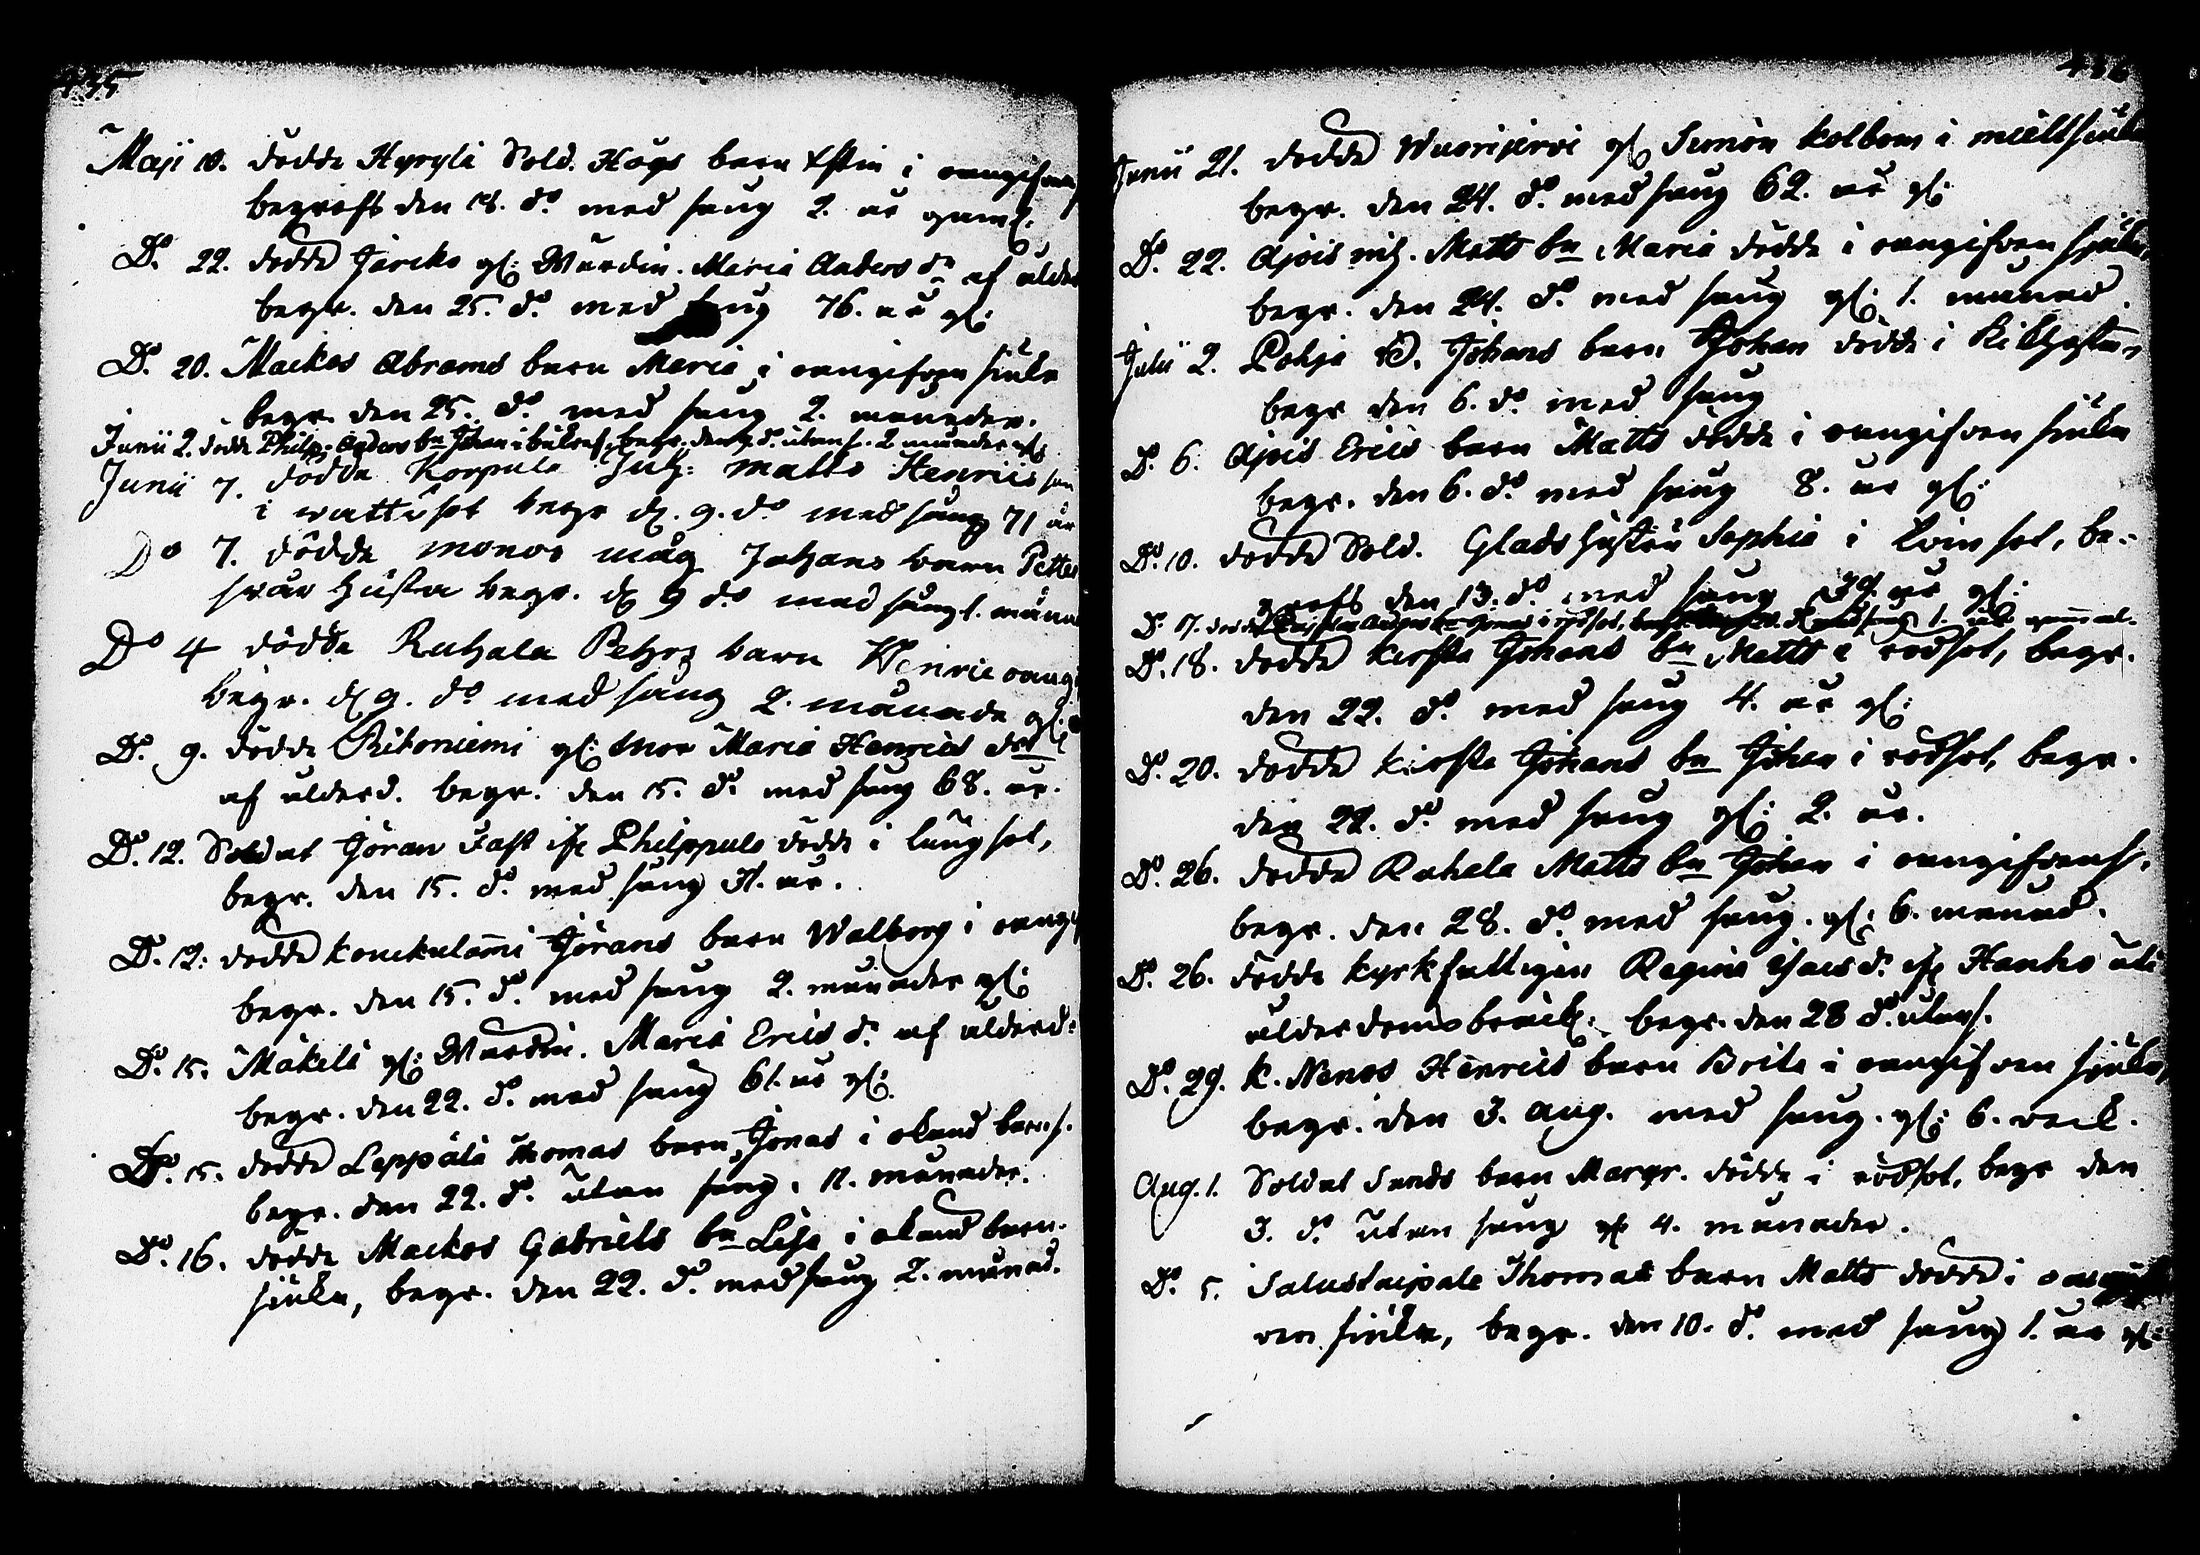 435
Maji 10. dödde Hyryle Sold. Högs barn Estin i oangifven
begrofs den 18. do. med sång 2. år gaml.
Do. 22. dödde Järcko gl: Wärdin. Maria Anders dr. af ålder
begr. den 25. do. med sång 76. år gl:
Do. 20. Mackos Abrams barn Maria i oangifven siuka
begr. den 25. do. med sång 2. månader.
Junii 2. dödde Philp: Anders bn Johan i begr. den do. utan s. 2 månader gl:
Junii 7. dödde Korpula Inh: Matts Henrics son
i wattusot begr d. 9. do med sång 71 år
Do 7. dödde Monos måg Johans barn Petter
svår husta begr. d. 9 do med sång 1. månad
Do 4 dödde Ruhala Petrs barn Henric oangi
begr. d. 9. do med sång 2. månade gl:
Do. 9. dödde Ritoniemi gl: Mor Maria Henrics dotter
af ålderd. begr. den 15. do. med sång 68. år.
Do. 12. Soldat Göran Fast ifr Philppula dödde i lungsot,
begr. den 15. do. med sång 31. år.
Do. 12. dödde Kouckulami Görans barn Walborg i oangif
begr. den 15. do. med sång 2. månader gl:
Do. 15. Mäkelä gl: Wärdin. Maria Erics dr. af ålderd:
begr. den 22. do. med sång 61. år gl:
Do. 15. dödde Leppälä Thomas barn Jonas i okänd barns.
begr. den 22. do. utan sång, 11. månader.
Do. 16. dödde Mackos Gabriels bn Lisa i okänd barn-
siuka, begr. den 22. do. med sång 2. månad.
436
Junii 21. dödde Wuorijervi gl Simon Kolbom i mieltsiuka
begr. den 24. do. med sång 62. år gl:
Do. 22. Ajois Matts bn Maria dödde i oangifven sjuka,
begr. den 24. do. med sång gl: 1. månad.
Julii 2. Pohja Johans barn Johan dödde i Kikhosta,
begr den 6. do. med sång
Do. 6. Ajois Erics barn Matts dödde i oangifven siuka
begr. den 6. do. med sång 8. år gl:
Do. 10. dödde Sold. Glads hustru Sophia i sot, be-
grofs den 13. do. med sång 39. år gl:
Do. 17. dödde Anders bn Jonas i rödsot, begr. med sång 1. år gammal.
Do. 18. dödde Kirsta Johans bn Matts i rödsot, begr.
den 22. do. med sång 4. år gl:
Do. 20. dödde Kirsta Johans bn Johan i rödsot, begr.
den 22. do. med sång gl: 2. år.
Do. 26. dödde Ruhala Matts bn Johan i oangifven s.
begr. den 28. do. med sång. gl: 6. månad.
Do. 26. dödde kyrkfattigin Regina Isacs d. ifr Hanho uti
ålderdoms bräck. begr. den 28 do. utan s.
Do. 29. K. Nenos Henrics barn Brita i oangifven sjuka,
begr. den 3. Aug. med sång. gl: 6. veck.
Aug. 1. Soldat Sunds barn Margr. dödde i rödsot, begr den
3. do. utan sång gl 4. månader.
Do. 5. Salustaipale Thomas barn Matts dödde i oangif-
ven siuka, begr. den 10. do. med sång 1. år gl: